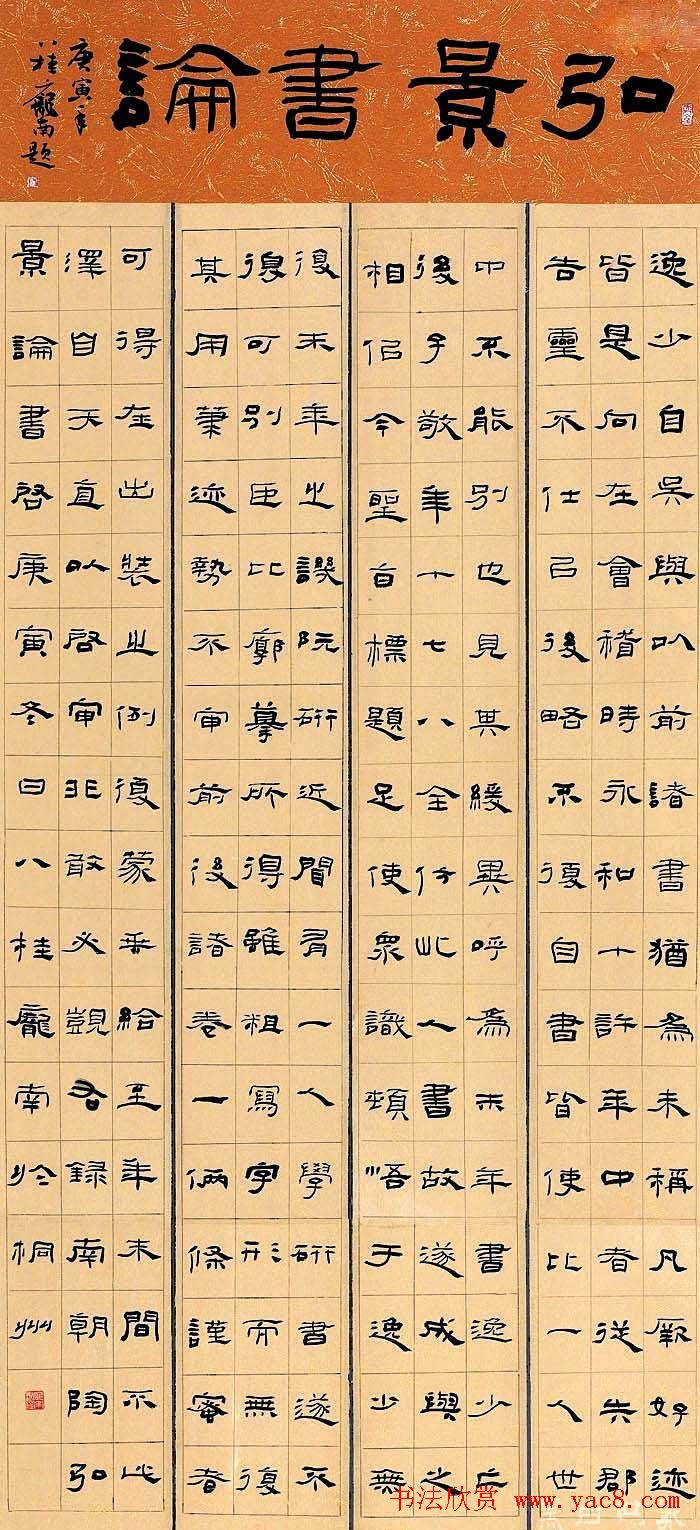 弘景書論
庚寅年
八桂龐南題
逸少自吳興以前諸書猶為未稱凡厥好迹
皆是向在會稽時永和十許年中者從失郡
告靈不仕已後略不復自書皆使比一人世
中不能別也見其緩異呼為末年書逸少亡
後子敬年十七八全仿此人書故遂成與之
相似今聖旨標題足使眾識頓悟于逸少無
復末年之譏阮研近聞有一人學研書遂不
復可別臣比廓摹所得雖粗寫字形而無復
其用筆迹勢不審前後諸卷一兩條謹密者
可得在出裝之例復蒙垂給至年末間不此
澤自天直以啓審非敢必覬右錄南朝陶弘
景論書啓庚寅冬日八桂龐南於桐州
书法欣赏 www.yac8.com